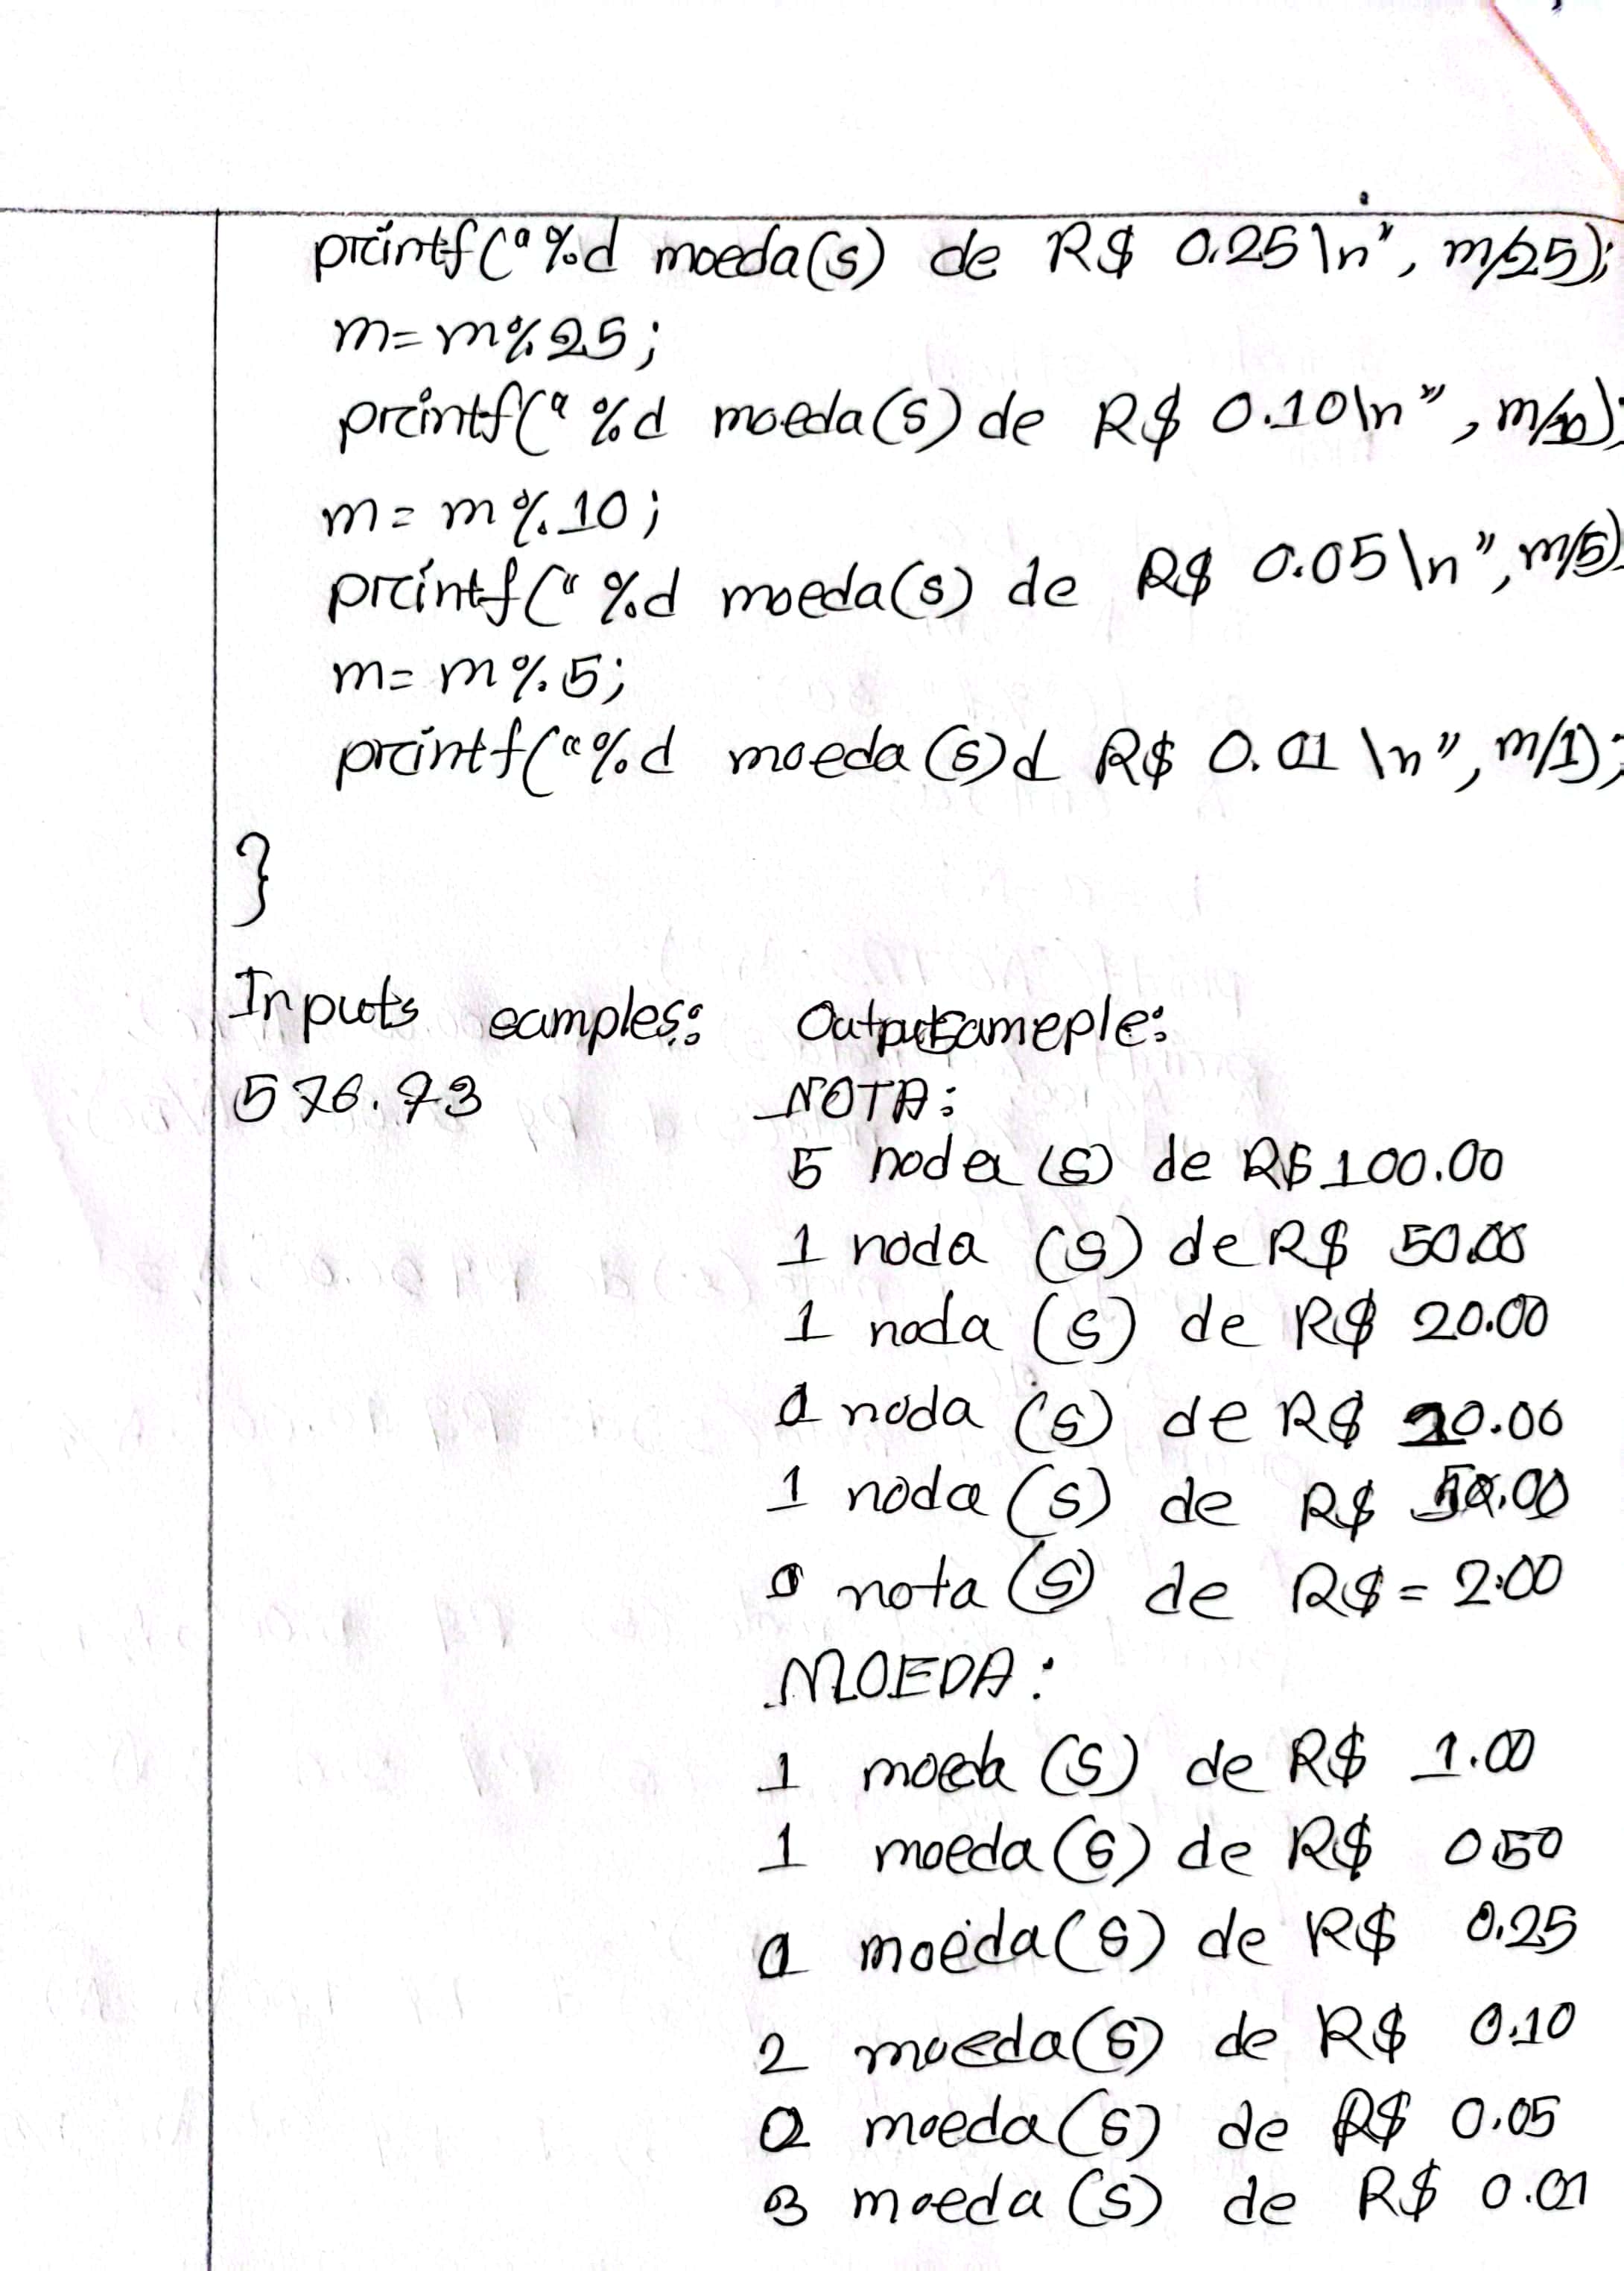 printf("%d moeda(s) de R$ 0.25\n", m/25);
m=m%25;
printf("%d moeda(s) de R$ 0.10\n", m/10);
m=m%10;
printf("%d moeda(s) de R$ 0.05\n", m/5)
m=m%5;
printf("%d moeda(s)d R$ 0.01 \n", m/1);
}
Inputs samples: Output sameple:
576.73 NOTA:
5 noda (s) de R$ 100.00
1 noda (s) de R$ 50.00
1 noda (s) de R$ 20.00
0 noda (s) de R$ 10.00
1 noda (s) de R$
0 nota (s) de R$ = 2.00
MOEDA:
1 moeda (s) de R$ 1.00
1 moeda (s) de R$ 0.50
0 moeda (s) de R$ 0.25
2 moeda (s) de R$ 0.10
0 moeda (s) de R$ 0.05
3 moeda (s) de R$ 0.01